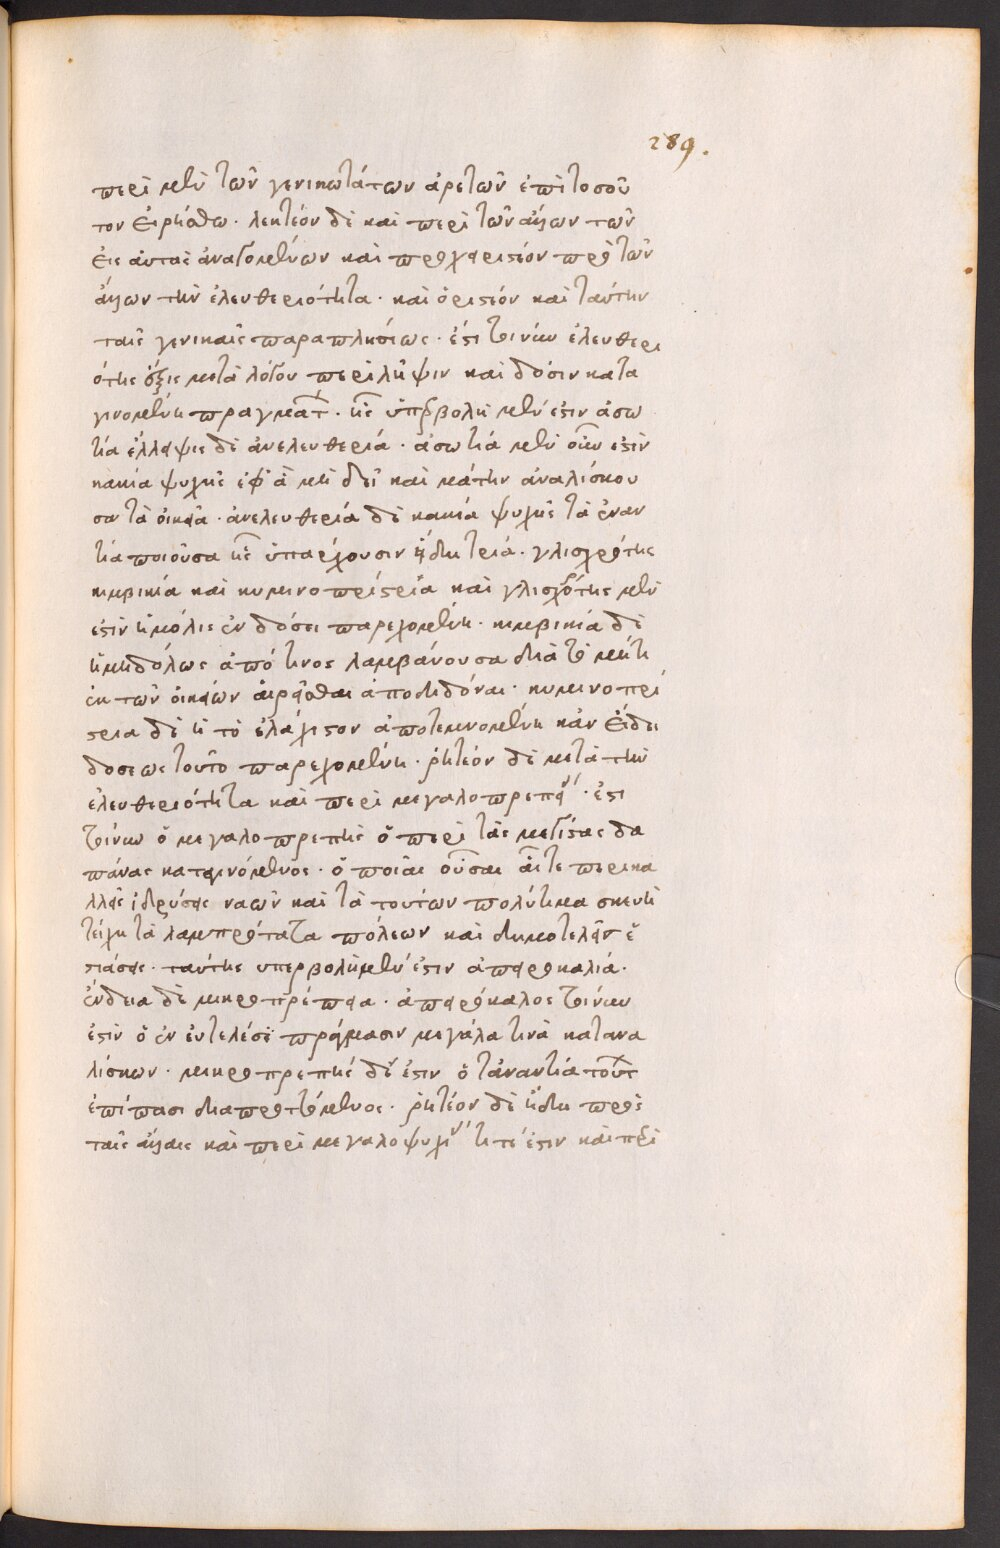 289.
περὶ μὲν τῶν γενικωτάτων ἀρετῶν ἐπὶ τοσοῦ
τον εἰρήσθω· λεκτέον δὲ καὶ περὶ τῶν ἄλλων τῶν
εἰς αὐτὰς ἀναγομένων καὶ προχειριστέον πρὸ τῶν
ἄλλων τὴν ἐλευθεριότητα· καὶ ὁριστέον καὶ ταύτην
ταῖς γενικαῖς παραπλησίως· ἔστι τοίνυν ἐλευθερι
ότης ἕξις μετὰ λόγον περὶ λῆψιν καὶ δόσιν κατα
γινομένη πραγμάτ· ἧς ὑπερβολὴ μέν ἐστιν ἀσω
τία ἔλλειψις δὲ ἀνελευθερία· ἀσωτία μὲν οὖν ἐστὶν
κακία ψυχῆς ἐφ' ἃ μὴ δεῖ καὶ μάτην ἀναλίσκου
σα τὰ οἰκεῖα· ἀνελευθερία δὲ κακία ψυχῆς τὰ ἐναν
τία ποιοῦσα ἧς ὑπάρχουσιν εἴδη τρία· γλισχρότης
κιμβικία καὶ κυμινοπρίστεία καὶ γλισχρότης μέν
ἐστὶν ἡ μόλις ἐν δόσει παρεχομένη· κιμβικία δὲ
ἡ μηδόλως ἀπό τινος λαμβάνουσα διὰ τὸ μήτι
ἐκ τῶν οἰκείων αἱρεῖσθαι ἀποδιδόναι· κυμινοπρί
στεια δὲ ἡ τὸ ἐλάχιστον ἀποτεμνομένη κἂν εἴδει
δόσεως τοῦτο παρεχομένη· ῥητέον δὲ μετὰ τὴν
ἐλευθεριότητα καὶ περὶ μεγαλοπρεπεί· ἔστι
τοίνυν ὁ μεγαλοπρεπὴς ὁ περὶ τὰς μεγίστας δα
πάνας καταγινόμενος· ὁποῖαι οὖσαι αἵ τε περικα
λλεῖς ἱδρύσεις ναῶν καὶ τὰ τούτων πολύτιμα σκευὴ
τείχη τὰ λαμπρότατα πόλεων καὶ δημοτελεῖς ἑ
στιάσεις· ταύτης ὑπερβολὴ μέν ἐστιν ἀπειροκαλία·
ἔνδεια δὲ μικροπρέπεια· ἀπειρόκαλος τοίνυν
ἐστὶν ὁ ἐν εὐτελέσι πράγμασιν μεγάλα τινὰ κατανα
λίσκων· μικροπρεπὴς δέ ἐστιν ὁ τἀναντία τούτ
ἐπίπασι διαπραττόμενος· ῥητέον δὲ ἤδη πρὸς
ταῖς ἄλλαις καὶ περὶ μεγαλοψυχί τί τέ ἐστιν καὶ περὶ